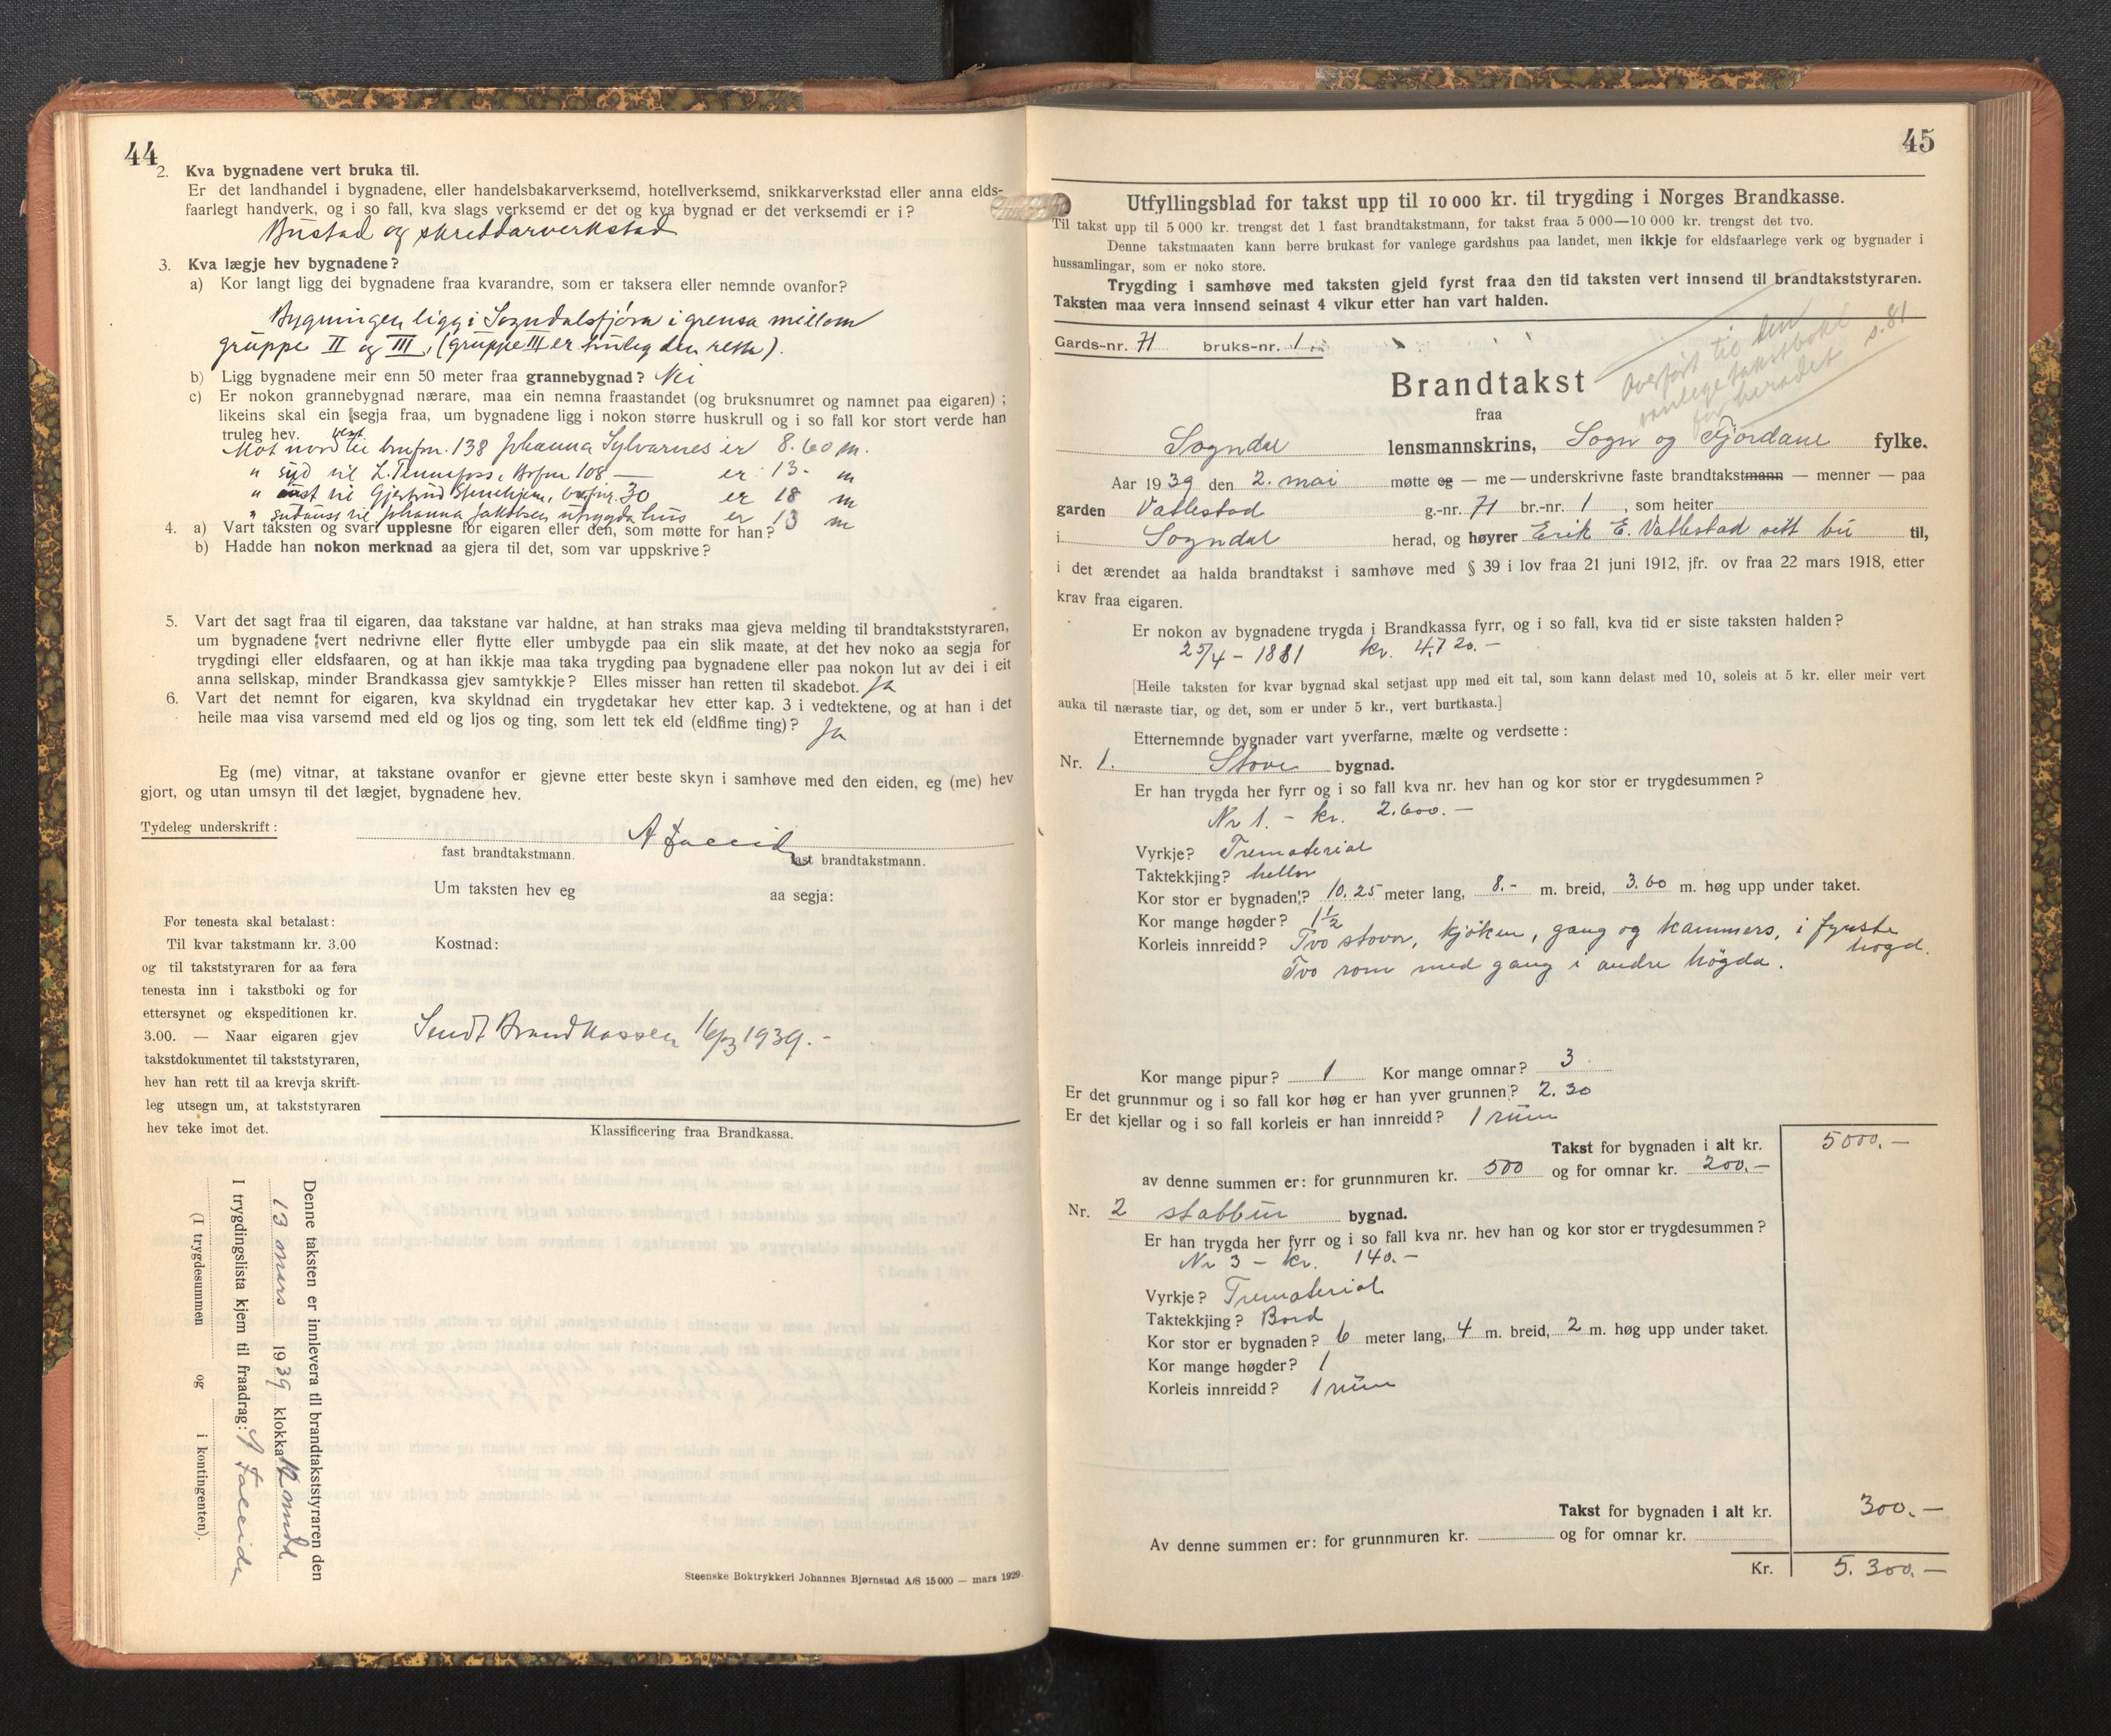 44
2. Kva bygnadene vert bruka til.
Er det landhandel i bygnadene, eller handelsbakarverksemd, hotellverksemd, snikkarverkstad eller anna elds-
faarlegt handverk, og i so fall, kva slags verksemd er det og kva bygnad er det verksemdi er i?
Bustad og skreddarverkstad
3. Kva lægje hev bygnadene?
a) Kor langt ligg dei bygnadene fraa kvarandre, som er taksera eller nemnde ovanfor?
Bygningen ligg i Sogndalsfjöra i grensa millom
gruppe II og III, (gruppe III er truleg den rette).
b) Ligg bygnadene meir enn 50 meter fraa grannebygnad? Nei
c) Er nokon grannebygnad nærare, maa ein nemna fraastandet (og bruksnumret og namnet paa eigaren) ;
likeins skal ein segja fraa, um bygnadene ligg i nokon større huskrull og i so fall kor stort verde han
truleg hev.
Mot nordvest til brufnr. 138 Johanna Sylvarnes er 8.60 m.
" syd til L. Tennefoss, Brfnr 108 — er 13- m
" aust til Gjertrud Stenehjem, brfnr. 30 er 18 m
" sudaust til Johanna Jakobsen utrygda hus er 13 m
4. a) Vart taksten og svari upplesne for eigaren eller den, som møtte for han?
b) Hadde han nokon merknad aa gjera til det, som var uppskrive?
5. Vart det sagt fraa til eigaren, daa takstane var haldne, at han straks maa gjeva melding til brandtakststyraren,
um bygnadene vert nedrivne eller flytte eller umbygde paa ein slik maate, at det hev noko aa segja for
trygdingi eller eldsfaaren, og at han ikkje maa taka trygding paa bygnadene eller paa nokon lut av dei i eit
anna sellskap, minder Brandkassa gjev samtykkje? Elles misser han retten til skadebot. Ja
6. Vart det nemnt for eigaren, kva skyldnad ein trygdetakar hev etter kap. 3 i vedtektene, og at han i det
heile maa visa varsemd med eld og ljos og ting, som lett tek eld (eldfime ting)? Ja
Eg (me) vitnar, at takstane ovanfor er gjevne etter beste skyn i samhøve med den eiden, eg (me) hev
gjort, og utan umsyn til det lægjet, bygnadene hev.
Tydeleg underskrift: A Faleide
fast brandtakstmann. fast brandtakstmann.
Um taksten hev eg aa segja:
For tenesta skal betalast:
Til kvar takstmann kr. 3.00
og til takststyraren for aa føra
tenesta inn i takstboki og for
ettersynet og ekspeditionen kr.
3.00. — Naar eigaren gjev
takstdokumentet til takststyraren,
hev han rett til aa krevja skrift-
leg utsegn um, at takststyraren
hev teke imot det.
Kostnad:
Sendt Brandkassen 16/3 1939.-
Klassificering fraa Brandkassa.
Denne taksten er innlevera til brandtakststyraren den
13 mars 1939 klokka 12 midd
I trygdingslista kjem til fraadrag: A Faleide
(I trygdesummen og i kontingenten).
Steenske Boktrykkeri Johannes Bjørnstad A/S 15 000 — mars 1929.
45
Utfyllingsblad for takst upp til 10 000 kr. til trygding i Norges Brandkasse.
Til takst upp til 5 000 kr. trengst det 1 fast brandtakstmann, for takst fraa 5 000—10 000 kr. trengst det tvo.
Denne takstmaaten kann berre brukast for vanlege gardshus paa landet, men ikkje for eldsfaarlege verk og bygnader i
hussamlingar, som er noko store.
Trygding i samhøve med taksten gjeld fyrst fraa den tid taksten vert innsend til brandtakststyraren.
Taksten maa vera innsend seinast 4 vikur etter han vart halden.
Gards-nr. 71 bruks-nr. 1
Overført til den
vanlege takstboki
for heradet s. 81
Brandtakst
fraa
Sogndal lensmannskrins, Sogn og Fjordane fylke.
Aar 1939 den 2. mai møtte eg — me — underskrivne faste brandtakstmann — menner — paa
garden Vatlestad g.-nr. 71 br.-nr. 1 , som heiter
i Sogndal herad, og høyrer Erik E. Vatlestad sitt bu til,
i det ærendet aa halda brandtakst i samhøve med § 39 i lov fraa 21 juni 1912, jfr. ov fraa 22 mars 1918, etter
krav fraa eigaren.
Er nokon av bygnadene trygda i Brandkassa fyrr, og i so fall, kva tid er siste taksten halden?
25/4 - 1881 kr. 4,720.-
[Heile taksten for kvar bygnad skal setjast upp med eit tal, som kann delast med 10, soleis at 5 kr. eller meir vert
auka til næraste tiar, og det, som er under 5 kr., vert burtkasta.]
Etternemnde bygnader vart yverfarne, mælte og verdsette :
Nr. 1. Stove bygnad.
Er han trygda her fyrr og i so fall kva nr. hev han og kor stor er trygdesummen?
Nr 1. - kr. 2.600.-
Vyrkje? Tremateriale
Taktekkjing? hellor
Kor stor er bygnaden? 10.25 meter lang, 8.- m. breid, 3.60 m. høg upp under taket.
Kor mange høgder? 1½
Korleis innreidd? Tvo stovor, kjöken, gang og kammers, i fyrste
høgd.
Tvo rom med gang i andre högda.
Kor mange pipur? 1 Kor mange omnar? 3
Er det grunnmur og i so fall kor høg er han yver grunnen? 2.30
Er det kjellar og i so fall korleis er han innreidd? 1 rum
Takst for bygnaden i alt kr. 5000.—
av denne summen er: for grunnmuren kr. 500 og for omnar kr. 200.—
Nr. 2 stabbur bygnad.
Er han trygda her fyrr og i so fall kva nr. hev han og kor stor er trygdesummen?
Nr 3 - kr. 140.-
Vyrkje? Tremateriale
Taktekkjing? Bord
Kor stor er bygnaden? 6 meter lang, 4 m. breid, 2 m. høg upp under taket.
Kor mange høgder? 1
Korleis innreidd? 1 rum
Takst for bygnaden i alt kr. 300.—
Av denne summen er: for grunnmuren kr. og for omnar kr.
Kr. 5.300.—